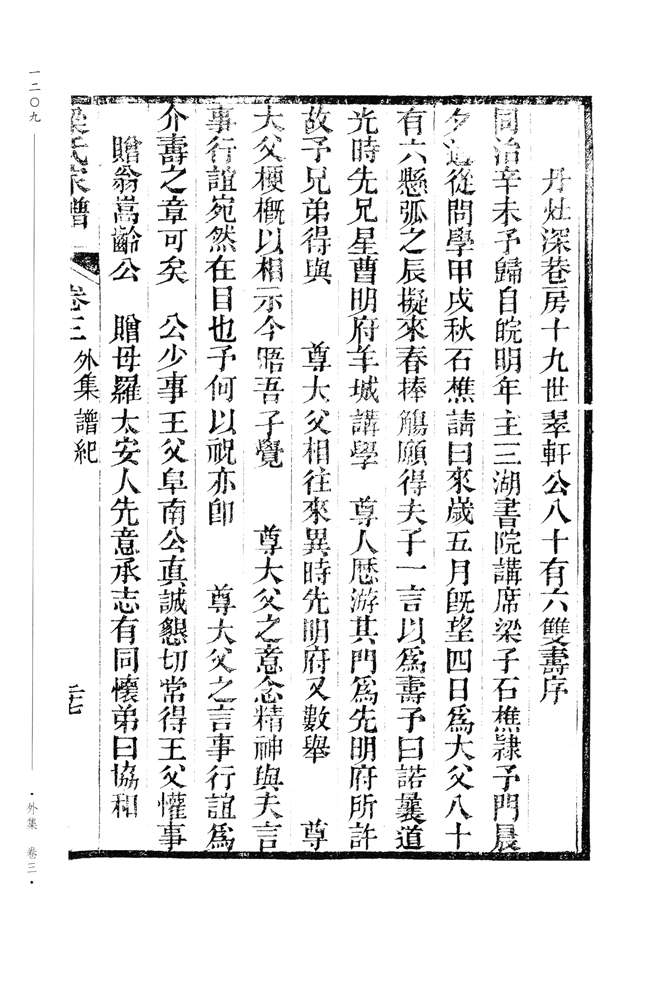 丹灶深巷房十九世翠軒公八十有六雙壽序
同治辛未予歸自皖明年主三湖書院講席梁子石樵隸予門晨
夕過從問學甲戌秋石樵請曰來歲五月旣望四日爲大父八十
有六懸弧之辰擬來春捧觴願得夫子一言以爲壽予曰諾曩道
光時先兄星曹明府羊城講學　尊人歷游其門爲先明府所許
故予兄弟得與　尊大父相往來異時先明府又數舉　尊
大父梗槪以相示今晤吾子覺　尊大父之意念精神與夫言
事行誼宛然在目也予何以祝亦卽　尊大父之言事行誼爲
介壽之章可矣　公少事王父阜南公真誠懇切常得王父懽事
贈翁嵩齡公　贈母羅太安人先意承志有同懷弟曰協和
梁氏家譜　卷三　外集　譜紀　二七
一二〇九
·外集　卷三·